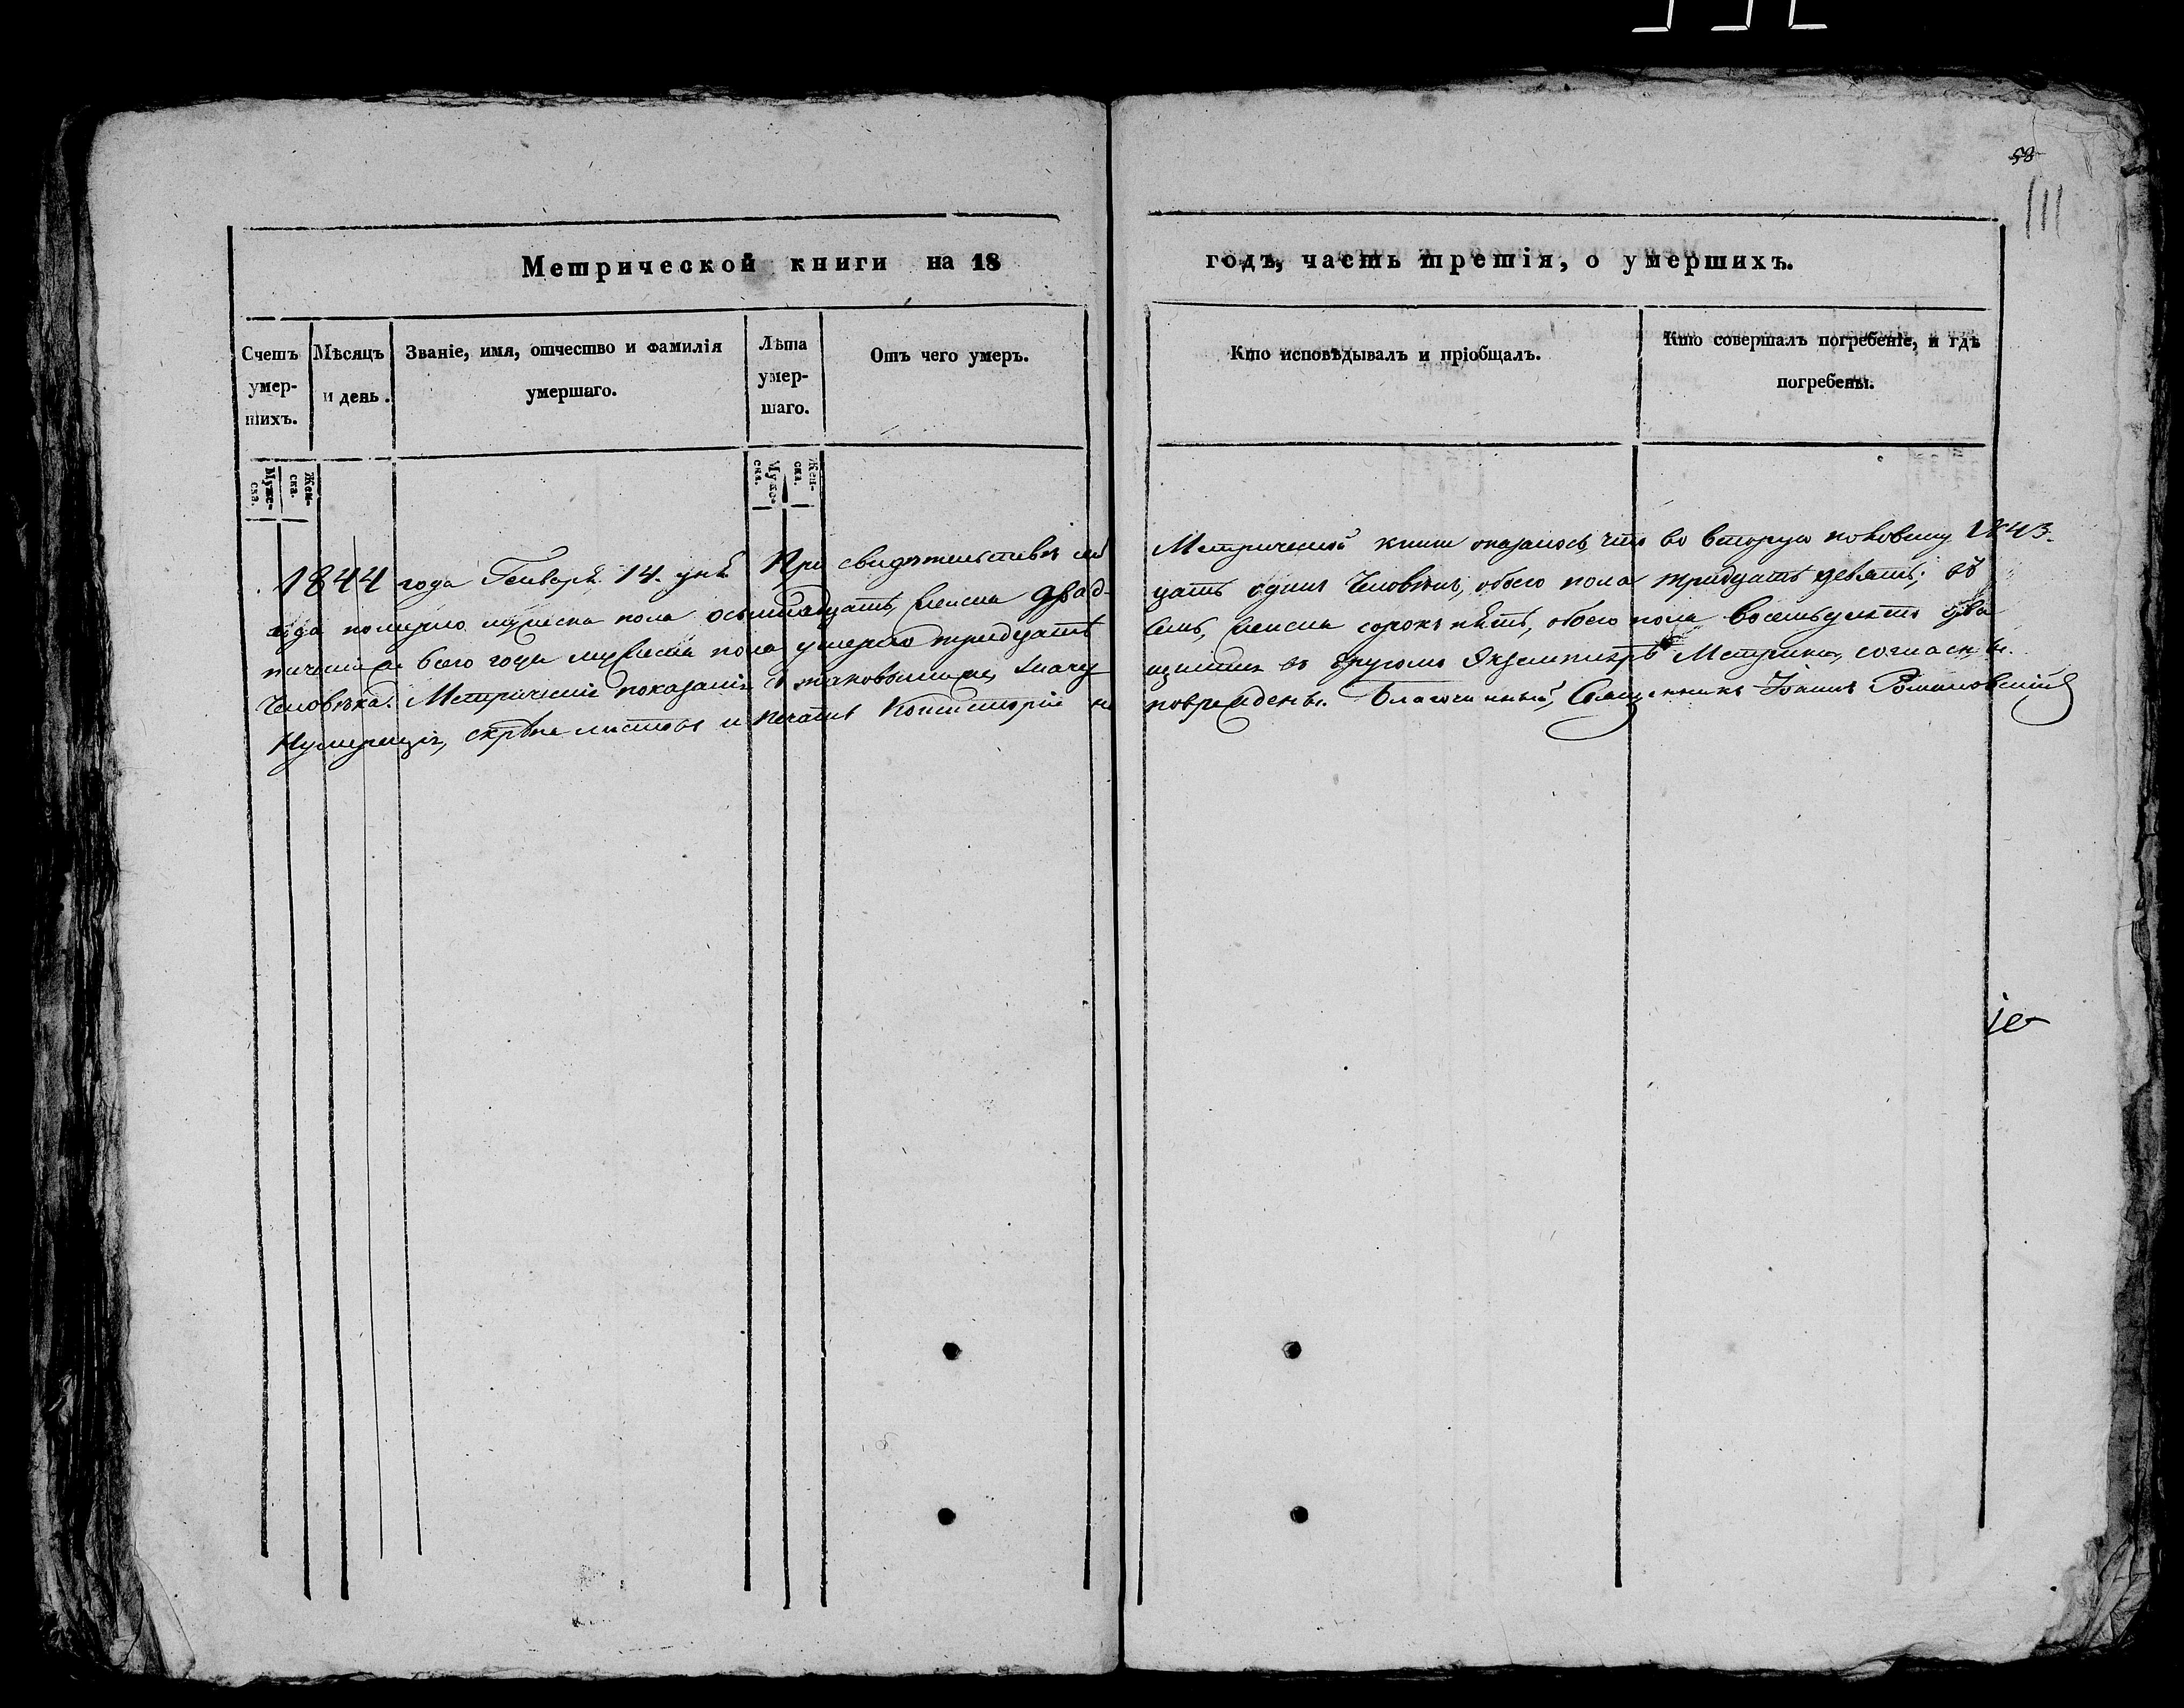 58
111
Метрической книги на 18 годъ, часть третія, о умершихъ.
Счетъ умер-шихъ.
Мѣсяцъ и день.
Званіе, имя, отчество и фамилія умершаго.
Лѣта умер-шаго.
Отъ чего умеръ.
Кто исповѣдывалъ и пріобщалъ.
Кто совершалъ погребеніе, и гдѣ погребены.
Муже-ска.
Жен-ска.
Муже-ска.
Жен-ска.
1844 года Генваря 14. дня При свидѣтельствѣ сей Метрической книги оказалось, что во вторую половину 1843.
года померло мужеска пола осьмнадцать, женска двад-цать одинъ Человѣкъ, обоего пола тридцать девять; въ
теченіи всего года мужеска пола умерло тридцать семь, женска сорокъ пять, обоего пола восемьдесятъ два
Человѣка. Метрическіе показанія съ таковыми же, значу-щимися въ другомъ Экземплярѣ Метрики, согласны.
Нумерація, скрѣпа листовъ и печать Консисторіи не повреждены. Благочинный, Священникъ Іоаннъ Романовскій